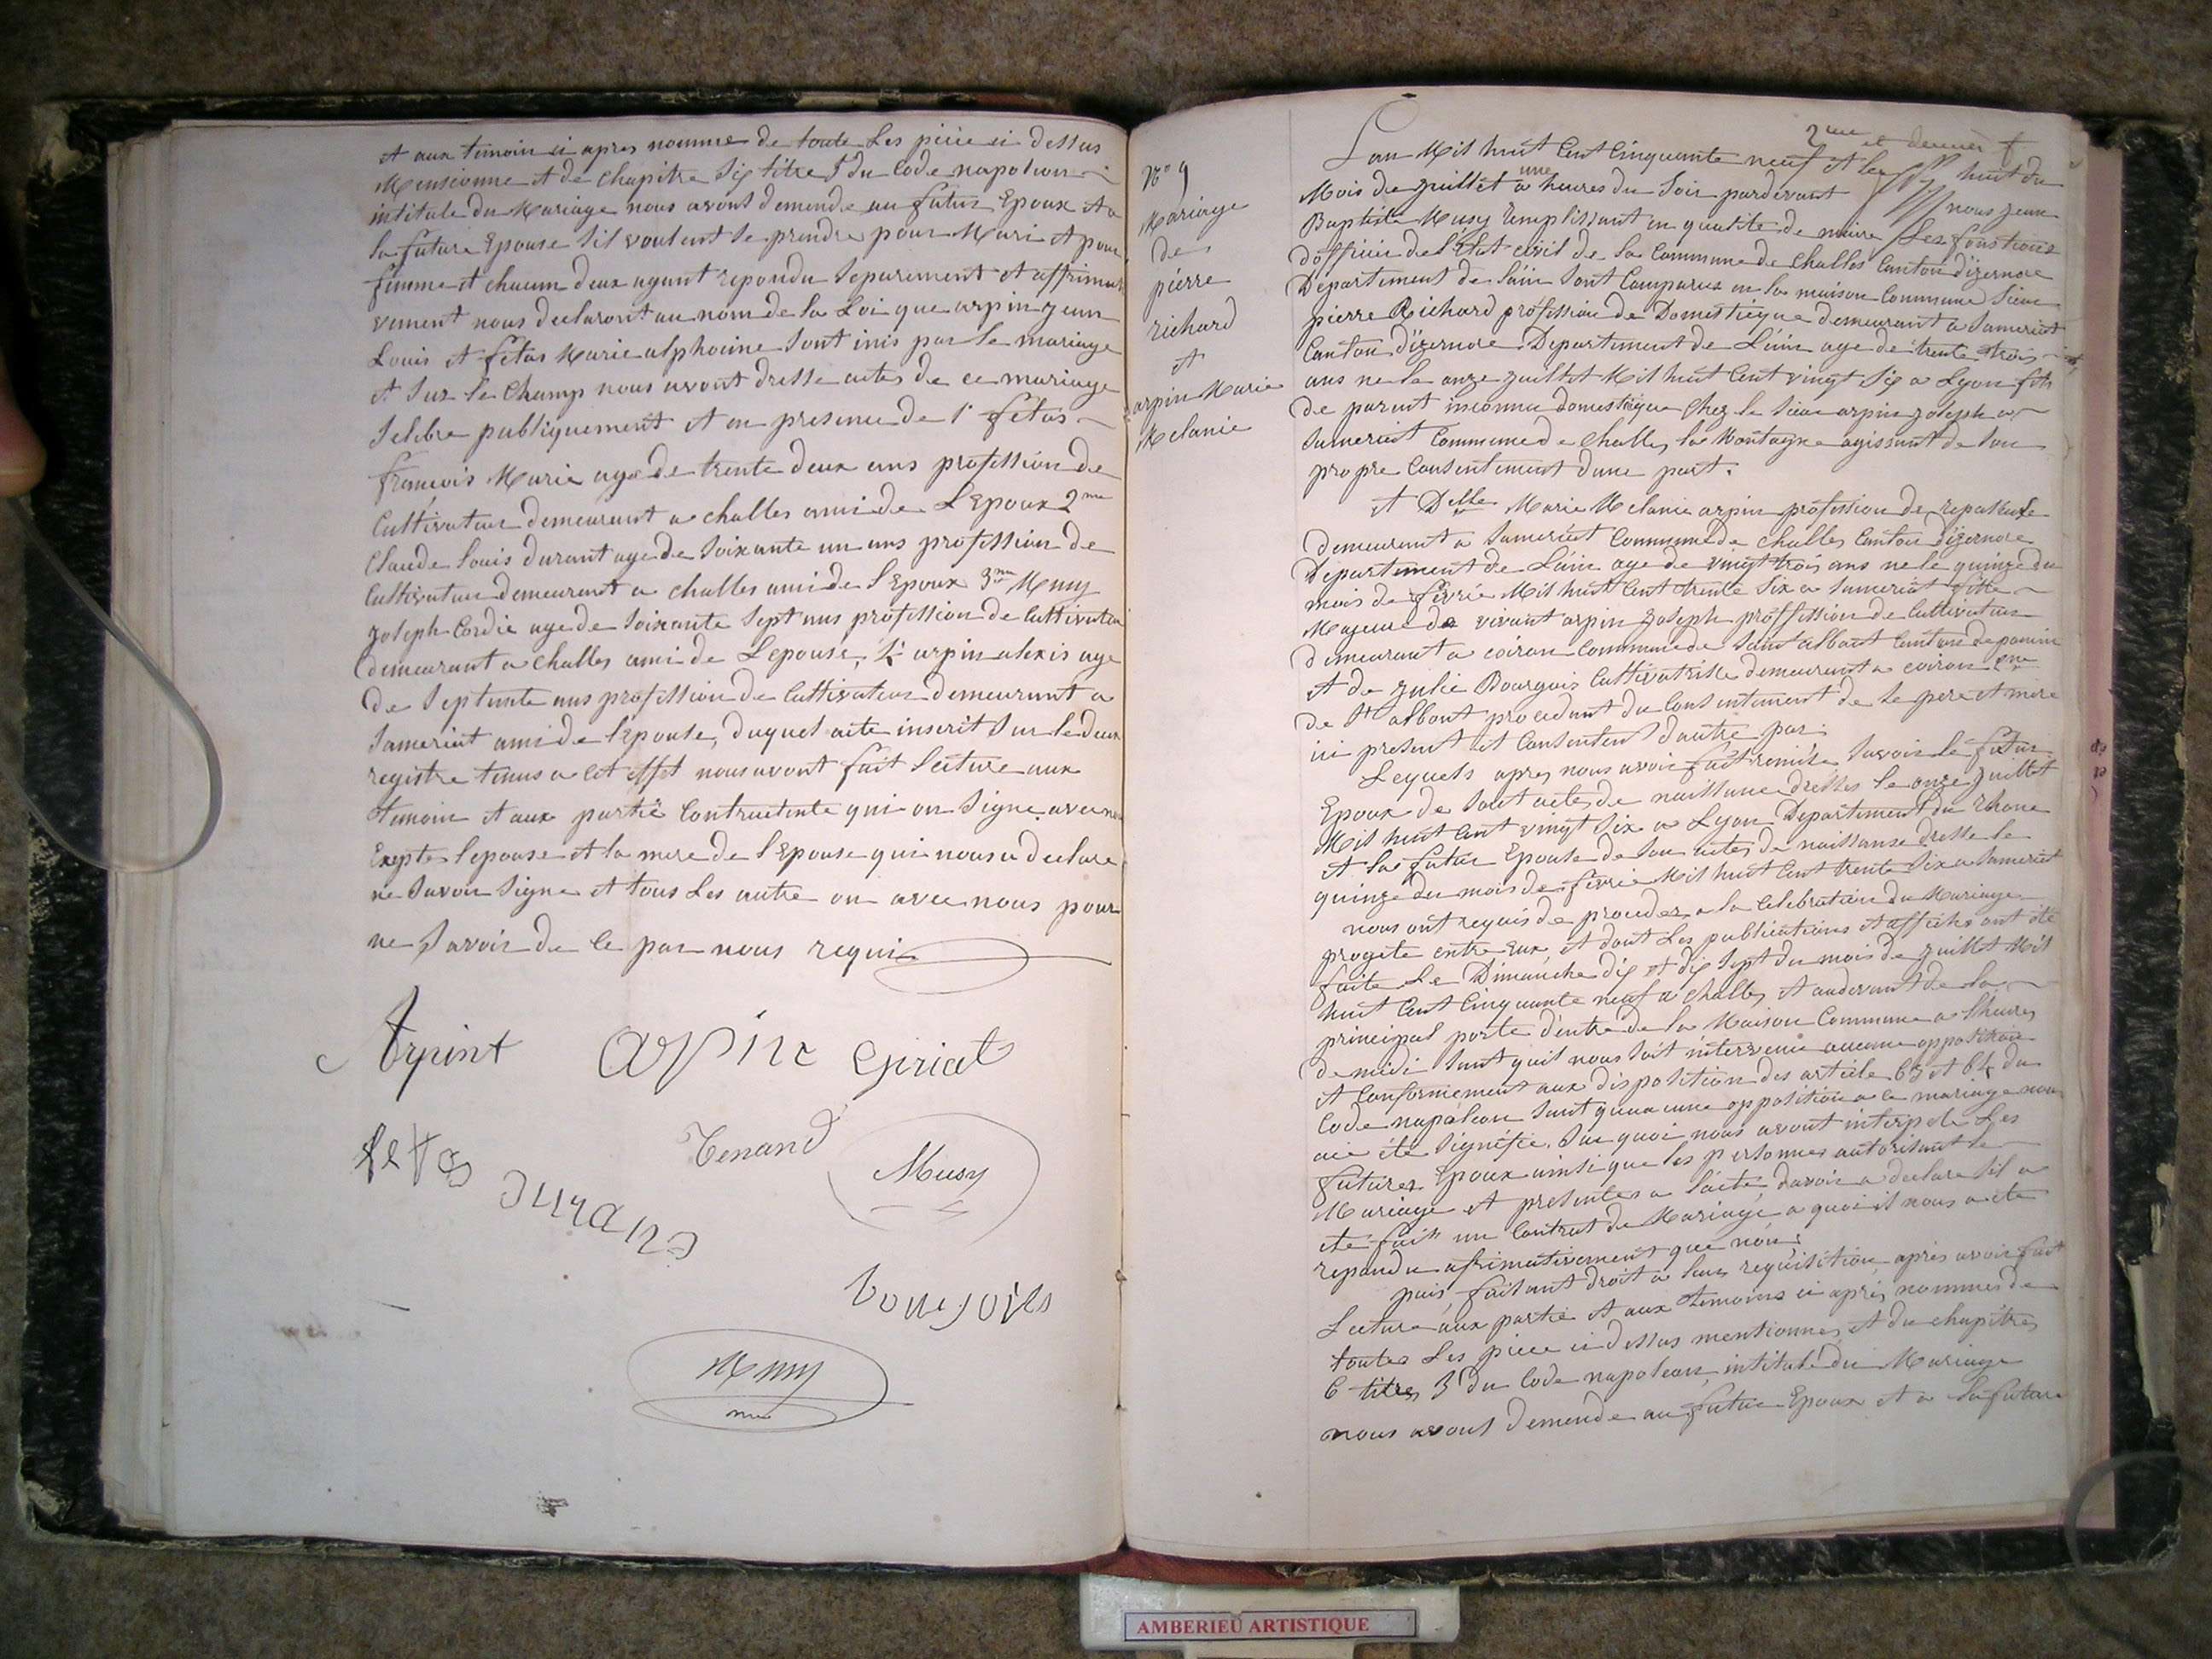 et aux temoin ci apres nomme de toute Les piece ci dessus
Mensionne et de chapitre Six titre 5 du Code napoleon
intitule du Mariage nous avont demende au futur Epoux et a
la future Epouse sil voulent se prendre pour Mari et pour
femme et chacun deux ayant repondu Separement et affirmati
vement nous declaront au nom de la Loi que arpin jean
Louis et fetas Marie alphocine sont inis par le mariage
et sur le Champ nous avont dresse actes de ce mariage
Selebre publiquement et en presence de 1° fetas
francois Marie age de trente deux ans profession de
Cultivateur demeurant a challes ami de L'Epoux 2me
Claude Louis durant age de soixante un ans profession de
Cultivateur demeurant a challes ami de l'Epoux 3me Musy
joseph Cordie age de soixante sept ans profession de Cultivateur
demeurant a challes ami de Lepouse, 4° arpin alexis age
de septente ans profession de Cultivateur demeurant a
Sameriat ami de l'Epouse, duquel acte inscrit sur le deux
registre tenus a cet effet nous avont fait lecture aux
temoin et aux partie Contractente qui on signe avec nous
Exepte lepouse et la mere de l'Epouse qui nous a declare
ne savoir signe et tous Les autre on avec nous pour
ne savoir de ce par nous requi
Arpint arpin Epriat
fetas Tenand Musy
durand
bourjois
Musy
N° 9
Mariage
de
pierre
richard
et
arpin Marie
Melanie
2me et dernier f
Lan Mil huit Cent Cinquante neuf et le huit du
Mois de juillet a une heures du Soir pardevant nous jean
Baptiste Musy Remplissant en qualite de maire Les fonctions
d'officier de l'Etat civil de la Commune de Challes Canton d'izernore
Departement de l'ain sont Comparus en la maison Commune Sieur
pierre Richard profession de Domestique demeurant a Sameriat
Canton d'izernore Departement de L'ain age de trente trois
ans ne le onze juillet Mil huit Cent vingt six a Lyon fils
de parent inconnu domestique Chez le Sieur arpin joseph a
Sameriat Commune de Challes la Montagne agissant de son
propre Consentement dune part.
et Delle Marie Melanie arpin profession de repasseuse
demeurant a Sameriat Commune de Challes Canton d'izernore
Departement de L'ain age de vingt trois ans ne le quinze du
mois de fevrie Mil huit Cent trente Six a Sameriat fille
Majeure de vivant arpin joseph profession de Cultivateur
demeurant a coiron Commune de Saint albant Canton de poncin
et de julie Bourgois Cultivatrisse demeurant a coiron
de St albant procedant du Consentement de se pere et mere
ici present et Consentent dautre par.
Lequels apres nous avoir fait remise Savoir le futur
Epoux de sont actes de naissance dresses le onze juillet
Mil huit Cent vingt six a Lyon Departement du Rhone
et la future Epouse de son actes de naissance dresse le
quinze du mois de fevrie Mil huit Cent trente Six a Sameriat
nous ont requis de proceder a la Celebration du Mariage
projete entre eux et dont Les publications et affiche ont été
faite Le Dimanche dix et dix sept du mois de juillet Mil
huit Cent Cinquante neuf a Challes et audevant de la
principal porte d'entre de la Maison Commune a lheures
de midi Sant quil nous Soit intervenu aucune opposition
et Conformement aux disposition des article 63 et 64 du
Code napoleon Sant quaucune opposition a ce mariage nous
aie été signifie. Sur quoi nous avont interpele Les
futures Epoux ainsi que les personnes autorisant le
Mariage et presentes a lacte, davoir a declare sil a
ete fait un Contrat de Mariage a quoi il nous a ete
repondu afirmativement que non.
puis, faisant droit a leur requisition apres avoir fait
Lecture aux partie et aux temoins ci apres nommes de
toutes Les piece ci dessus mentionnes et du chapitres
6 titres 5 du Code napoleon, intitule du Mariage
nous avont demende au futur Epoux et a la future
AMBERIEU ARTISTIQUE